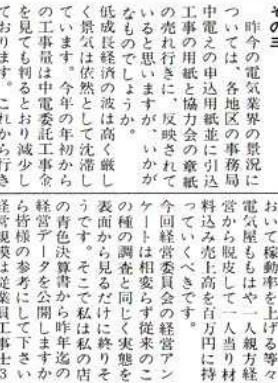 その三
　昨今の電気業界の景況に
ついては、各地区の事務局
中電えの申込用紙並に引込
工事の用紙と協力会の章紙
の売れ行きに、反映されて
いると思いますが、いかが
なものでしょうか。
　低成長経済の波は高く厳し
く景気は依然として沈滞し
ています。今年の年初から
の工事量は中電委託工事金
を見ても判るとおり減少し
ております。これから行き
おいて稼動率を上げる等々
電気屋もはや一人親方経
営から脱皮して一人当り材
料込み売上高を百万円に持
っていくべきです。
　今回経営委員会の経営アン
ケートは相変らず従来のこ
の種の調査と同じく実態を
表面から見るだけに終りそ
うです。そこで私は私の店
の青色決算書から昨年迄の
経営データを公開しますか
ら皆様の参考にして下さい
経営規模は従業員工事士3